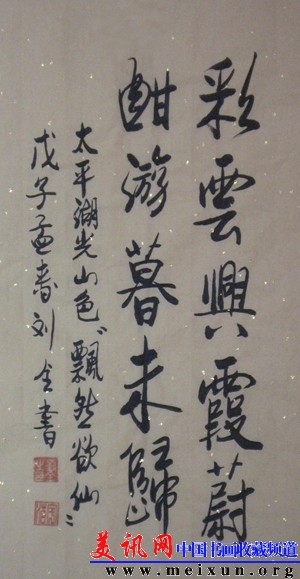 彩雲興霞蔚
酣游暮未歸
太平湖光山色"飄然欲仙"
戊子孟春刘全書
美讯网 中国书画收藏频道
www.meixun.org